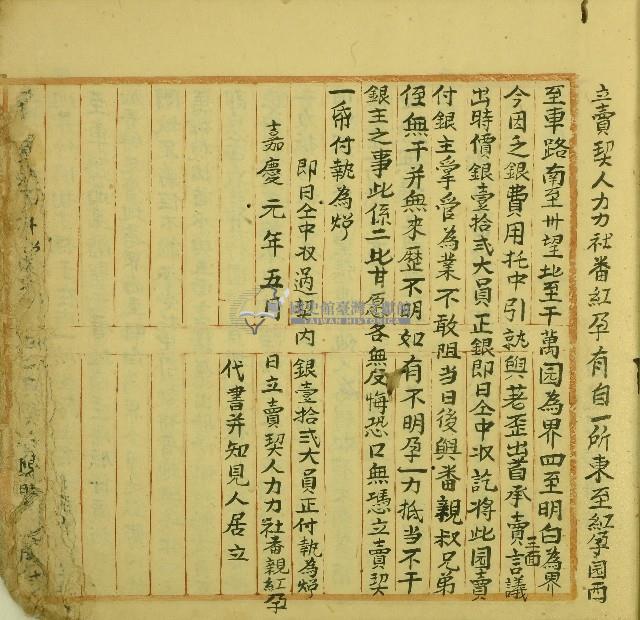 立賣契人力力社番紅孕有自一所東至紅孕园西
至車路南至卅望北至千萬园為界四至明白為界
今因乏銀費用托中引就與茗歪出首承賣三面言議
出時價銀壹拾弍大員正銀即日仝中収訖將此园賣
付銀主掌管為業不敢阻当日後與番親叔兄弟
侄無干并無來歷不明如有不明孕一力抵当不干
銀主之事此係二比甘愿各無反悔恐口無憑立賣契
一帋付執為炤
即日仝中収過契内銀壹拾弍大員正付執為炤
嘉慶元年五月 日立賣契人力力社番親紅孕
代書并知見人居立
國史館臺灣文獻館
TAIWAN HISTORICA